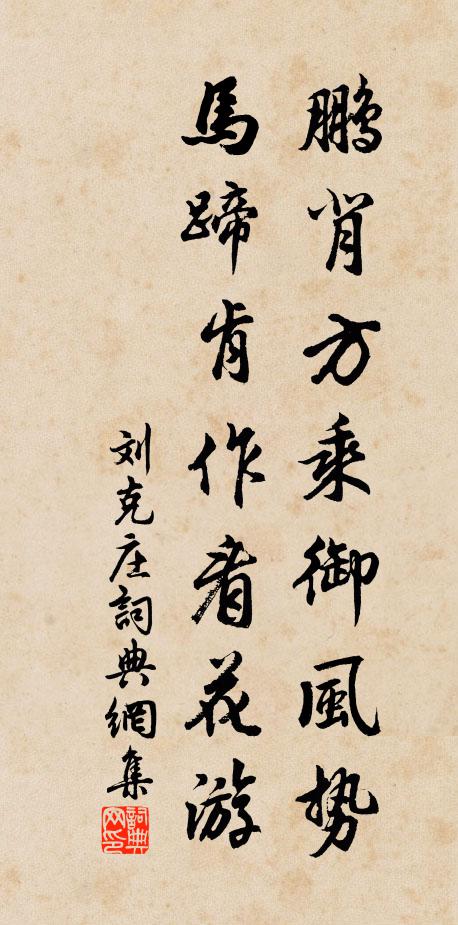 鹏背方乘御風势
馬蹄肯作看花游
刘克庄詞典網集
詞典网印